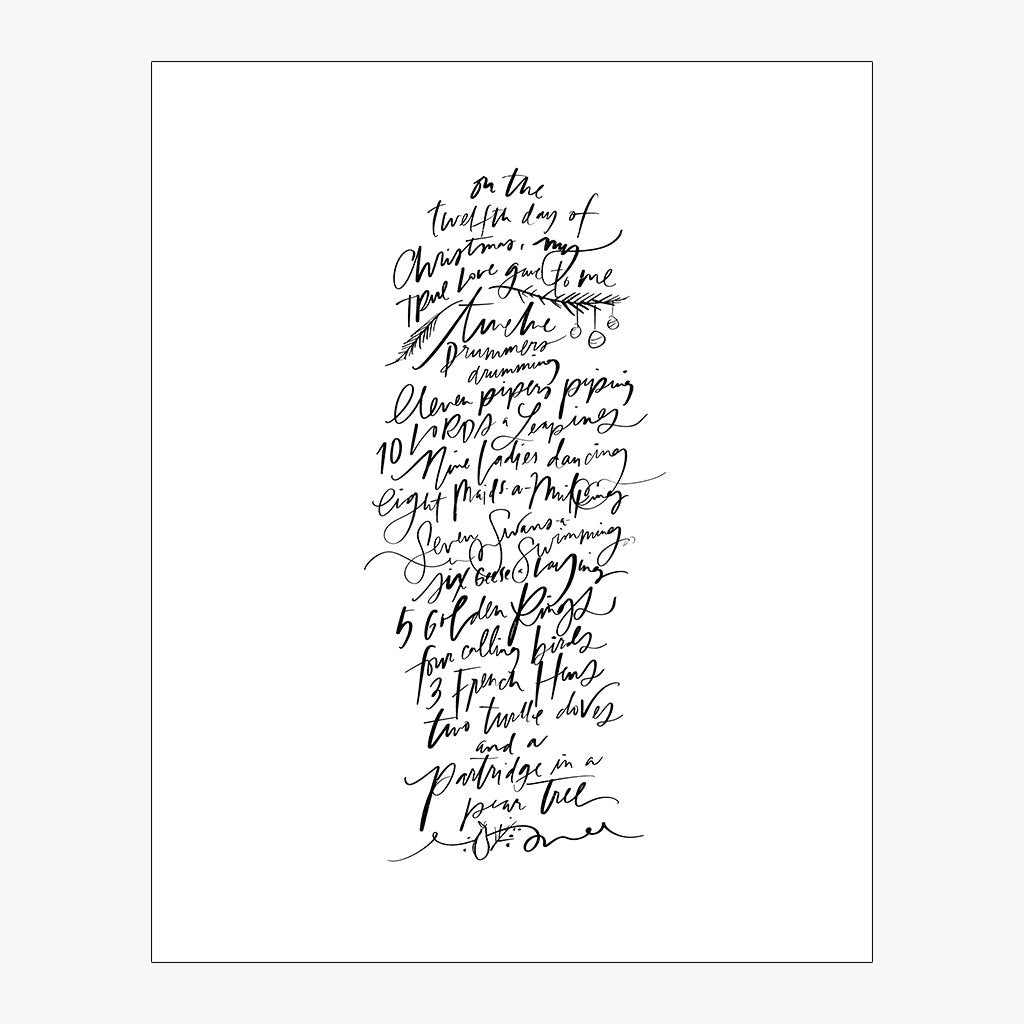 on the
twelfth day of
Christmas, my
TRue love gave to me
twelve
Drummers
drumming
Eleven pipers piping
10 LORDS a Leaping
Nine Ladies dancing
Eight Maids-a-Milking
Seven Swans-a-
Swimming
six Geese a Laying
5 Golden Rings
four calling birds
3 French Hens
two turtle doves
and a
partridge in a
pear Tree